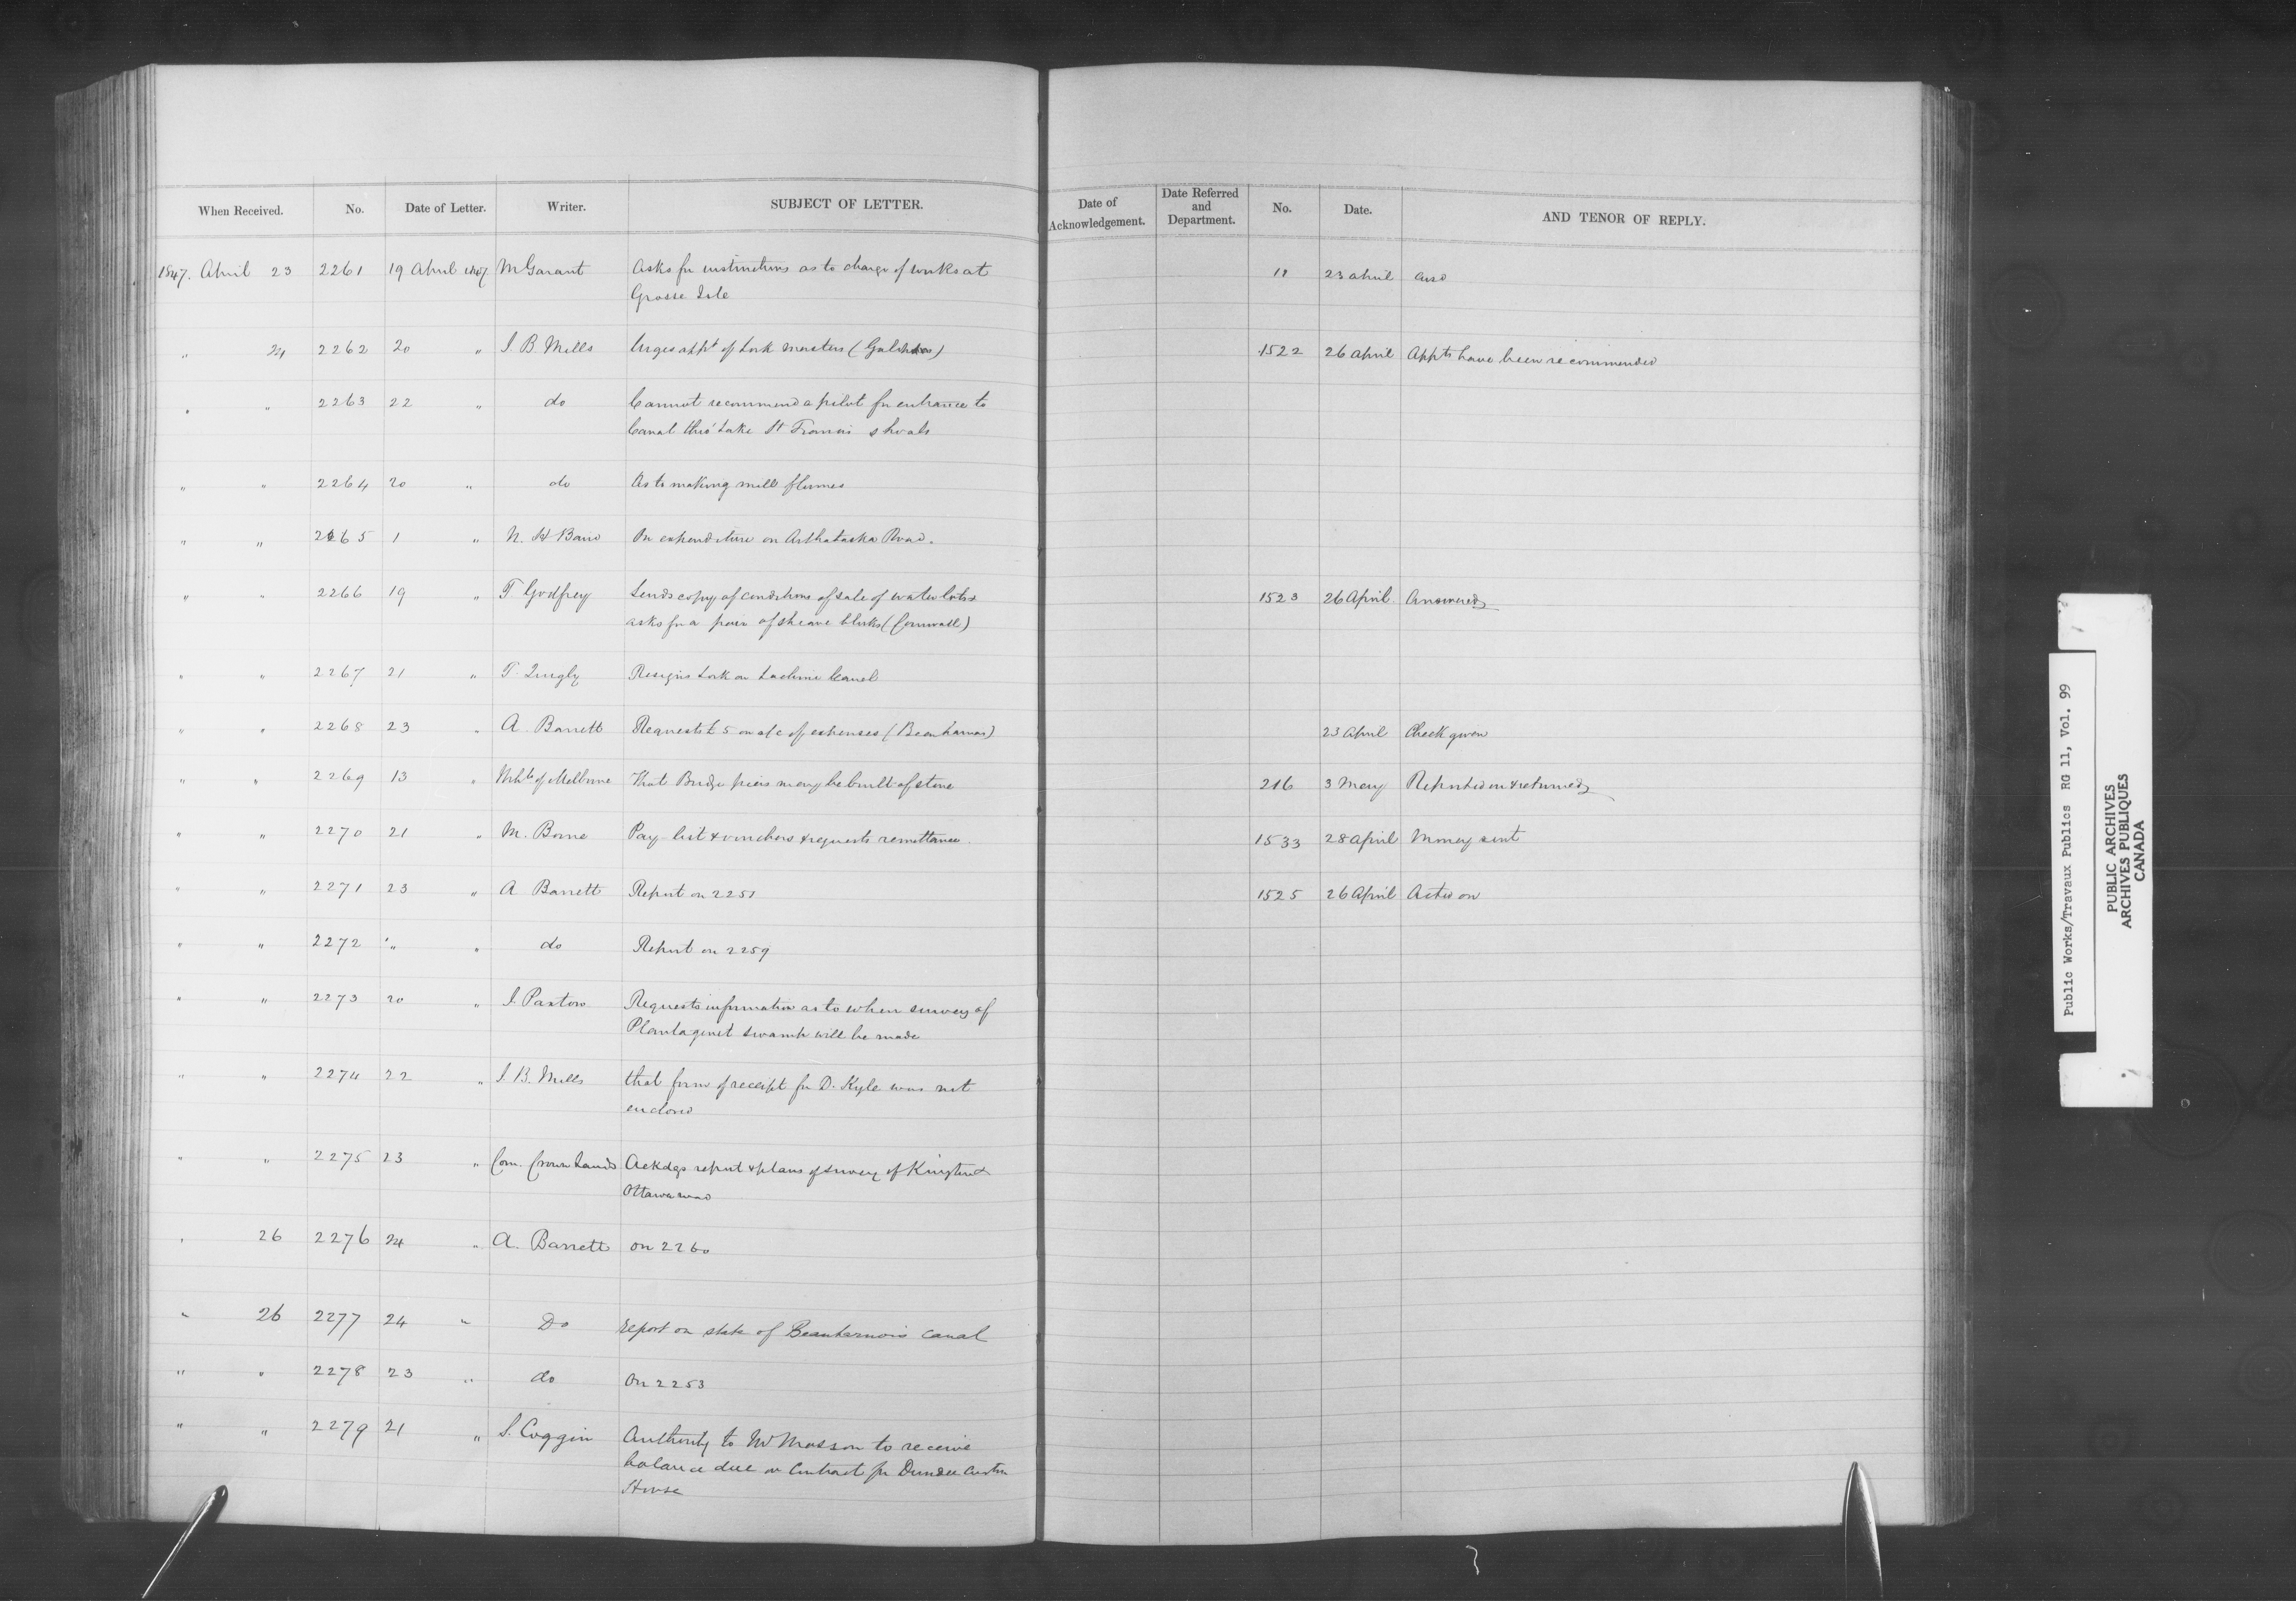 When Received. No. Date of Letter. Writer. SUBJECT OF LETTER. Date of Acknowledgement. Date Referred and Department. No. Date. AND TENOR OF REPLY.
1847. April 23 2261 19 April 1847 M Garant Asks for instructions as to charge of works at 11 23 April
Grosse Isle
" 24 2262 20 " J. B. Mills Urges appt of Lock masters 1522 26 April Appts have been recommended
" " 2263 22 " do Cannot recommend a pilot for entrance to
Canal thro' Lake St Francis shoals
" " 2264 20 " do As to making mill flumes
" " 2265 1 " N. H Baird On expenditure on Arthabaska Road.
" " 2266 19 " T Godfrey Sends copy of conditions of sale of water lots & 1523 26 April Answered
asks for a pair of sheave blocks (Cornwall)
" " 2267 21 " T. Quigly Resigns Lock on Lachine Canal
" " 2268 23 " A. Barrett Requests £5 on a/c of expenses (Beauharnois) 23 April Check given
" " 2269 13 " of Melborne That Bridge piers may be built of stone 216 3 May Reported on & returned
" " 2270 21 " M. Borne Pay list & vouchers & requests remittance. 1533 28 April Money sent
" " 2271 23 " A Barrett Report on 2251 1525 26 April Acted on
" " 2272 " " do Report on 2259
" " 2273 20 " J. Paxton Requests information as to when survey of
Plantaginet swamp will be made
" " 2274 22 " J. B. Mills that form of receipt for D. Kyle was not
enclosed
" " 2275 23 " Com. Crown Lands Ackdgs report & plans of survey of Kingston &
Ottawa road
" 26 2276 24 " A. Barrett on 2260
" 26 2277 24 " Do report on state of Beauharnois canal
" " 2278 23 " do On 2253
" " 2279 21 " S. Coggin Authority to Mr Masson to receive
balance due on Contract for Dundee Custom
House
Public Works/Travaux Publics RG 11, Vol. 99
PUBLIC ARCHIVES
ARCHIVES PUBLIQUES
CANADA